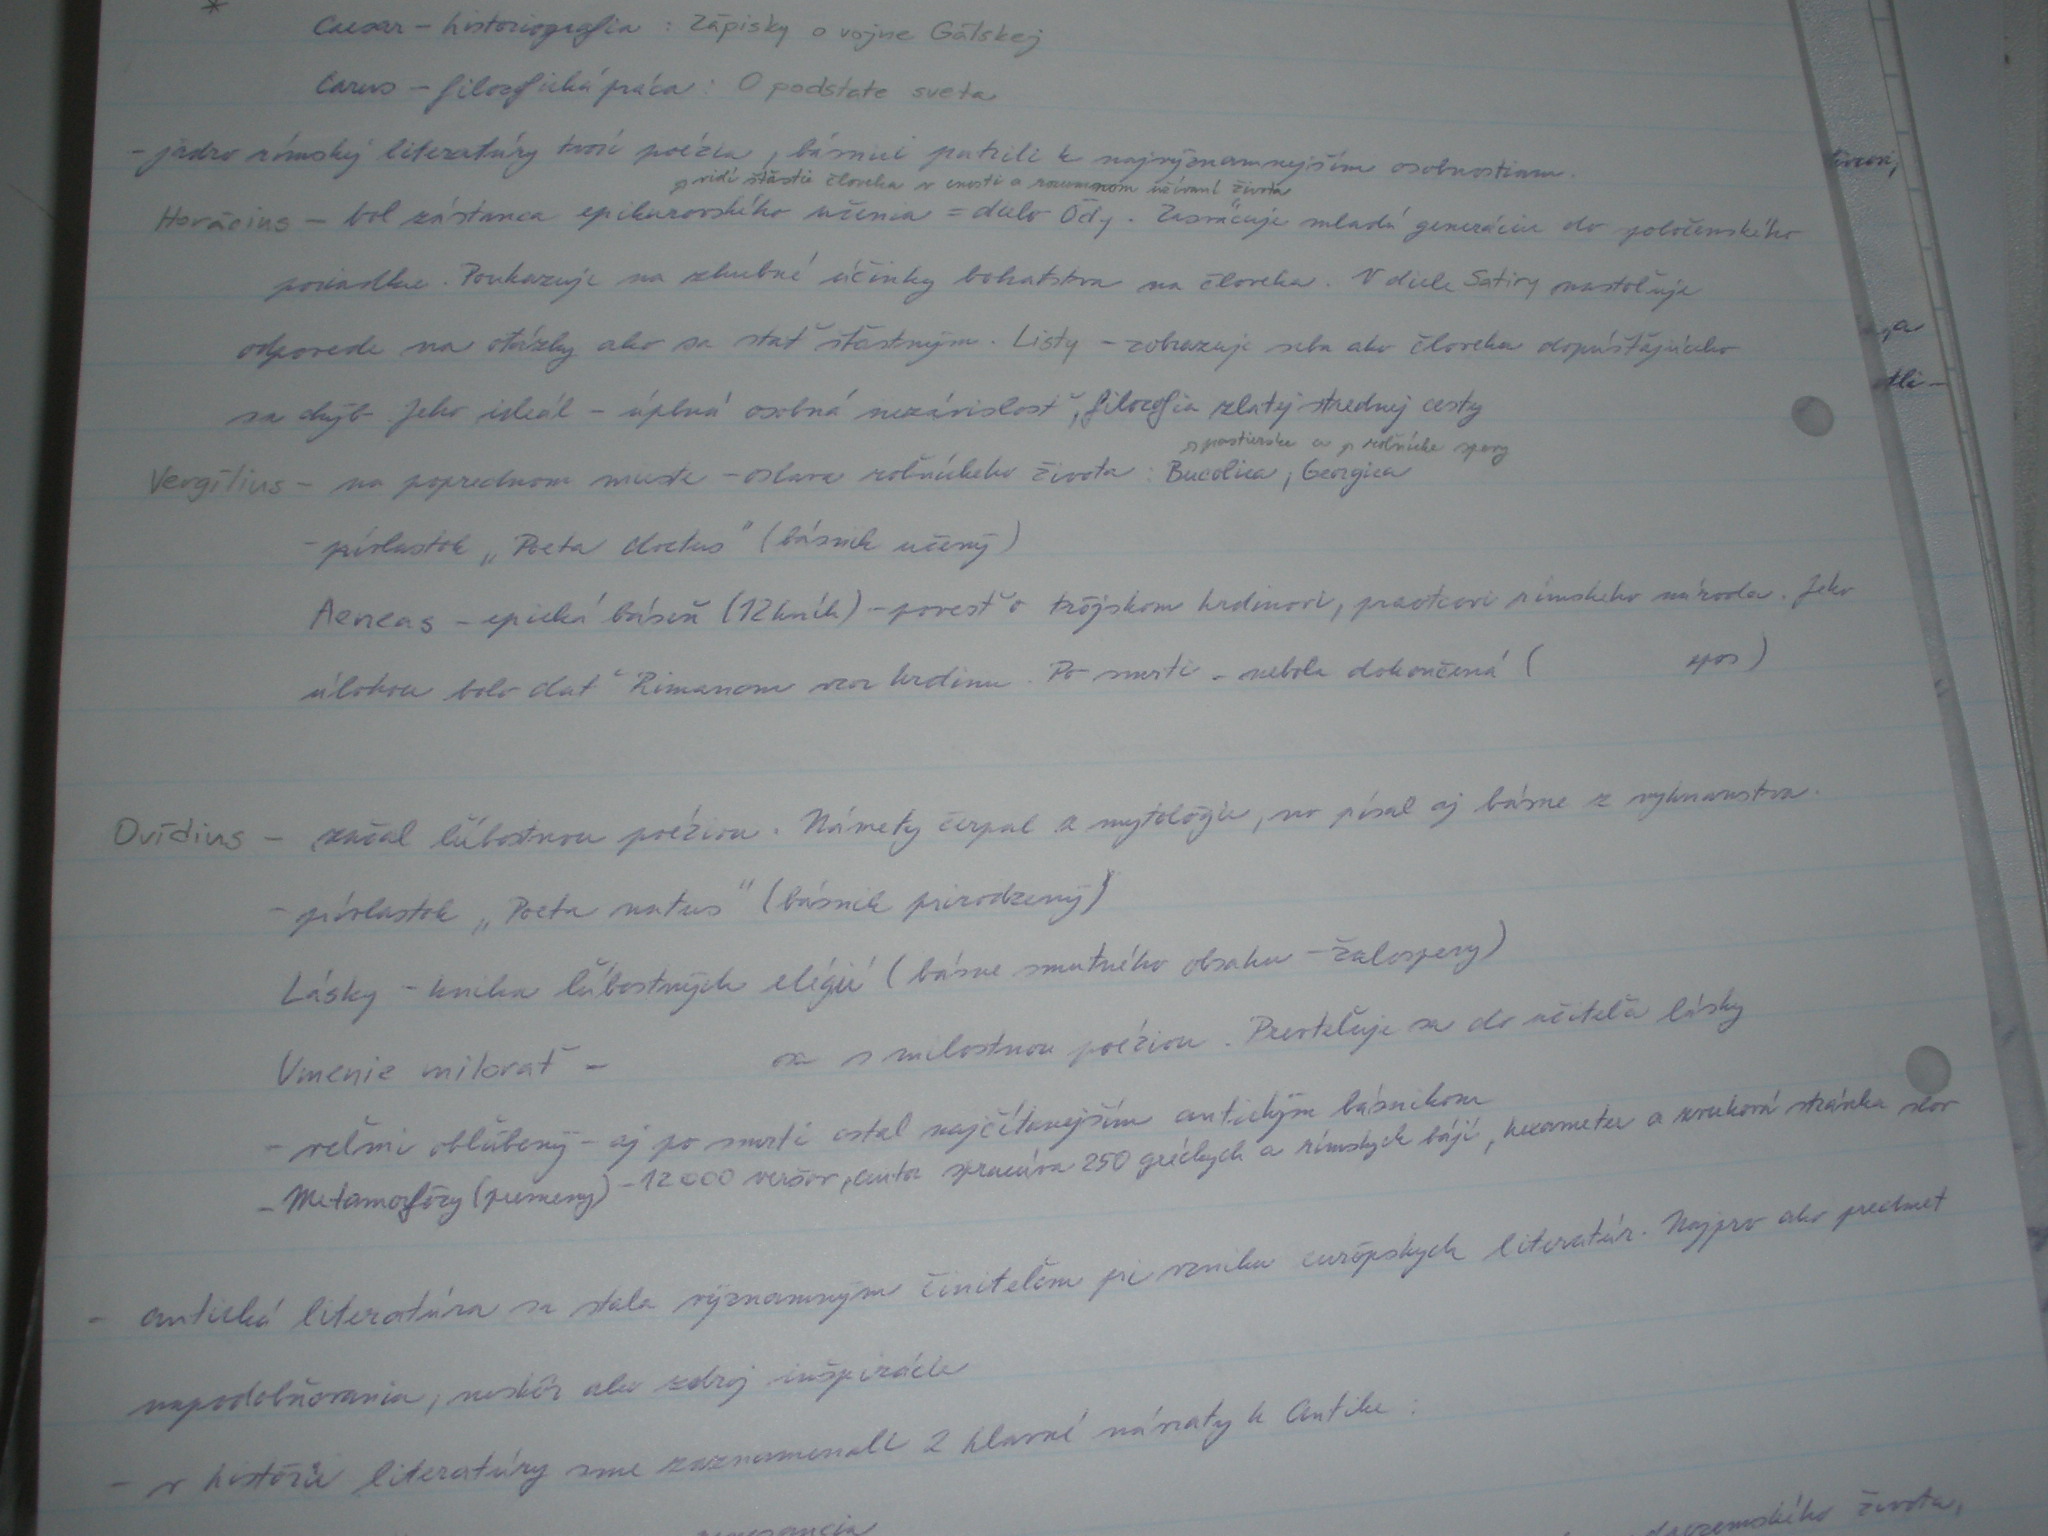 *
Caesar - historiografia : Zápisky o vojne Gálskej
Carus - filozofická práca : O podstate sveta
- jadro rímskej literatúry tvorí poézia, básnici patrili k najvýznamnejším osobnostiam.
vidí šťastie človeka v cnosti a rozumnom užívaní života
Horácius - bol zástanca epikurovského učenia = dielo Ódy. Zasväcuje mladú generáciu do spoločenského
poriadku. Poukazuje na zhubné účinky bohatstva na človeka. V diele Satiry nastoľuje
odpovede na otázky ako sa stať šťastným. Listy - zobrazuje seba ako človeka dopúšťajúceho
sa chýb. Jeho ideál - úplná osobná nezávislosť, filozofia zlatej strednej cesty
pastierske a roľnícke spevy
Vergílius - na poprednom mieste - oslava roľníckeho života : Bucolica, Georgica
- prívlastok „Poeta doctus" (básnik učený)
Aeneas - epická báseň (12 kníh) - povesť o trójskom hrdinovi, praotcovi rímskeho národa. Jeho
úlohou bolo dať Rimanom vzor hrdinu. Po smrti - nebola dokončená ( epos)
Ovídius - začal ľúbostnou poéziou. Námety čerpal z mytológie, no písal aj básne z vyhnanstva.
- prívlastok „Poeta natus" (básnik prirodzený)
Lásky - kniha ľúbostných elégií (básne smutného obsahu - žalospevy)
Umenie milovať - sa s milostnou poéziou. Prevteľuje sa do učiteľa lásky
- veľmi obľúbený - aj po smrti ostal najčítanejším antickým básnikom
- Metamorfózy (premeny) - 12 000 veršov, autor spracúva 250 gréckych a rímskych bájí, hexameter a zvuková stránka slov
- antická literatúra sa stala významným činiteľom pri vzniku európskych literatúr. Najprv ako predmet
napodobňovania, neskôr ako zdroj inšpirácie
- v histórii literatúry sme zaznamenali 2 hlavné návraty k Antike :
renesancia
života,